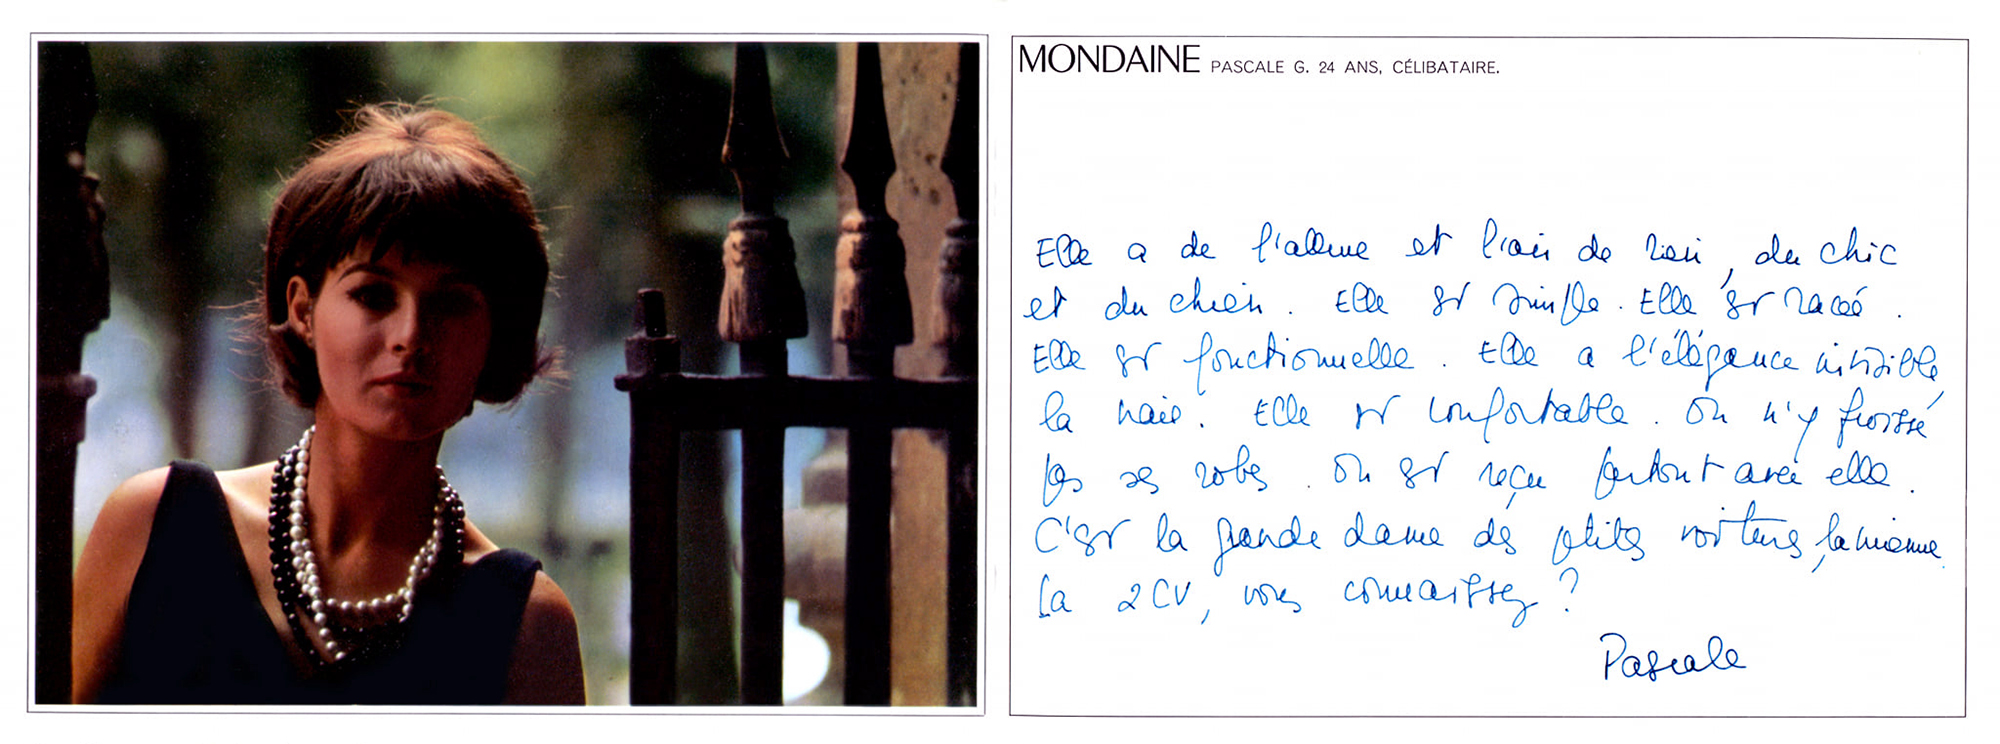 MONDAINE PASCALE G. 24 ANS, CÉLIBATAIRE.
Elle a de l'allure et l'air de rien, du chic
et du chien. Elle est simple. Elle est racée.
Elle est fonctionnelle. Elle a l'élégance invisible,
la vraie. Elle est confortable. On n'y froisse
pas ses robes. On est reçu partout avec elle.
C'est la grande dame des petites voitures, la mienne.
La 2 CV, vous connaissez ?
Pascale